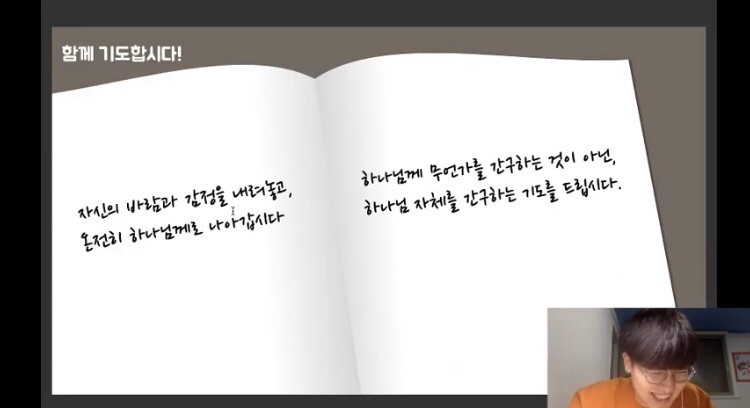 함께 기도합시다!
자신의 바람과 감정을 내려놓고,
온전히 하나님께로 나아갑시다
하나님께 무언가를 간구하는 것이 아닌,
하나님 자체를 간구하는 기도를 드립시다.